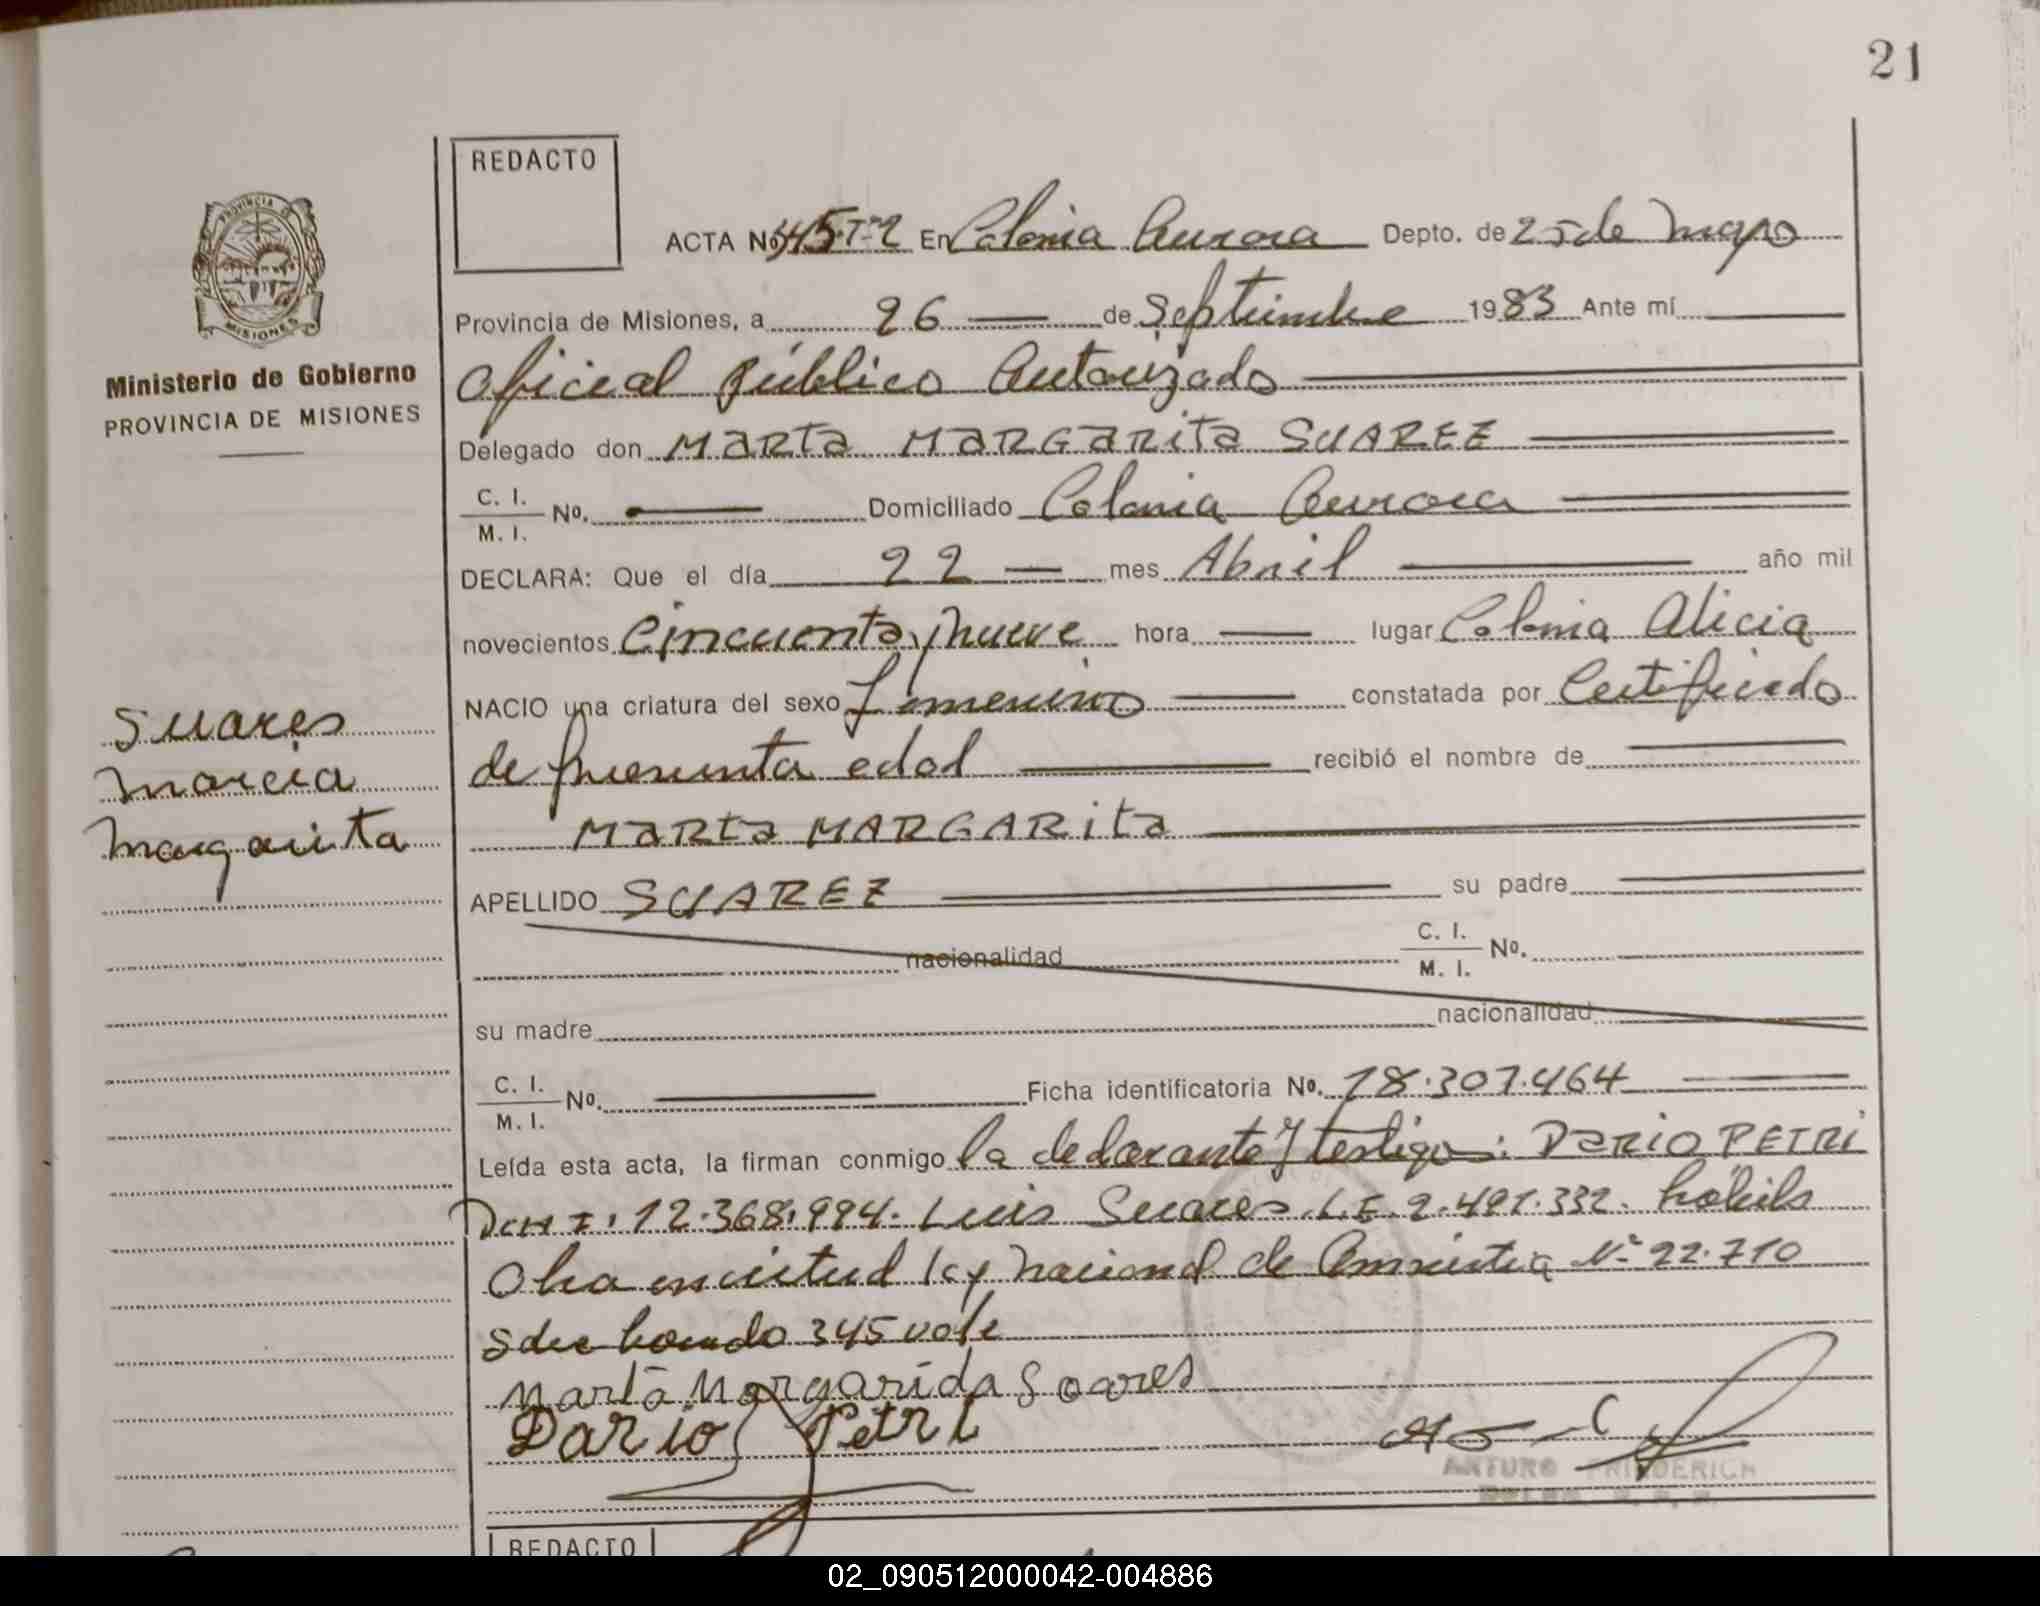 21
REDACTO
ACTA No 345.T-2 En Colonia Aurora Depto. de 25 de Mayo
Provincia de Misiones, a 26 de Septiembre 1983 Ante mí
Oficial Público Autorizado
Delegado don MARTA MARGARITA SUAREZ
C. I.
M. I. No. Domiciliado Colonia Aurora
DECLARA: Que el día 22 mes Abril año mil
novecientos Cincuenta y nueve hora lugar Colonia Alicia
NACIO una criatura del sexo femenino constatada por Certificado
de presunta edad recibió el nombre de
MARTA MARGARITA
APELLIDO SUAREZ su padre
nacionalidad C. I.
M. I. No.
su madre nacionalidad
C. I.
M. I. No. Ficha identificatoria No. 18.307.464
Leída esta acta, la firman conmigo la declarante y testigos: DARIO PETRI
D.N.I. 12.368.994. Luis Suares L.E. 2.491.332. habils
Acta en virtud ley Nacional de Amnistia Nº 22.710
345 vale
Marta Margarida Soares
Dario Petri
ARTURO FRIEDERICH
REDACTO
PROVINCIA DE
MISIONES
Ministerio de Gobierno
PROVINCIA DE MISIONES
Suares
Marcia
Margarita
02_090512000042-004886